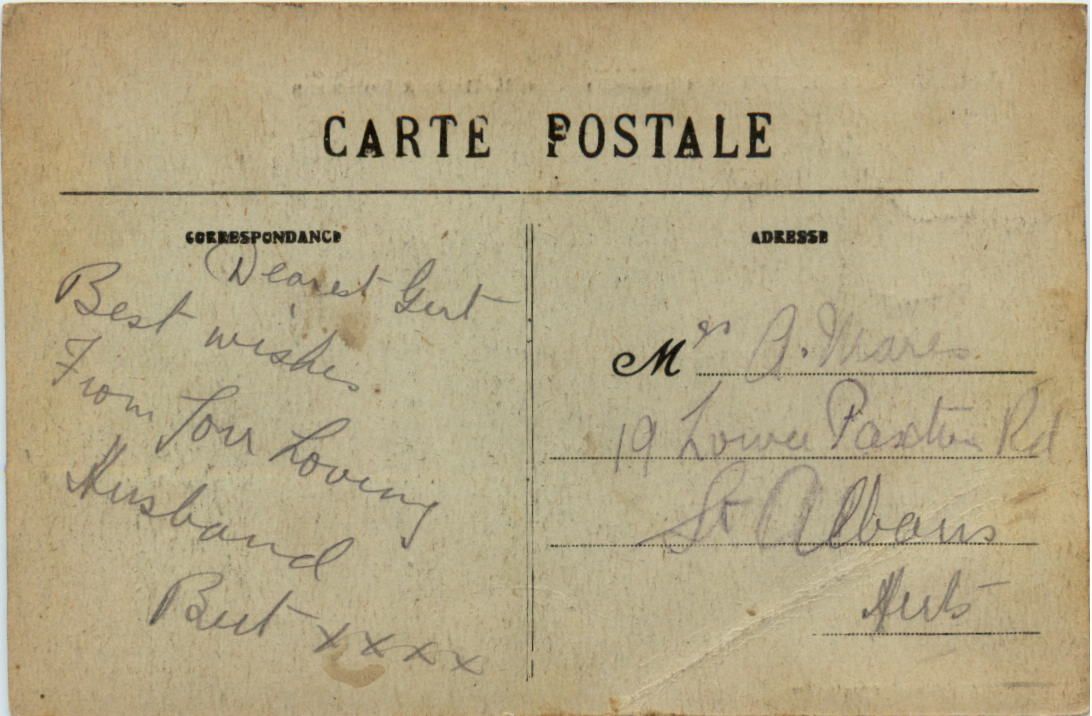 CARTE POSTALE
CORRESPONDANCE
Dearest Gert
Best wishes
From Your Loving
Husband
Bert xxxx
ADRESSE
Mrs B. Mares
19 Lower Paxton Rd
St Albans
Herts